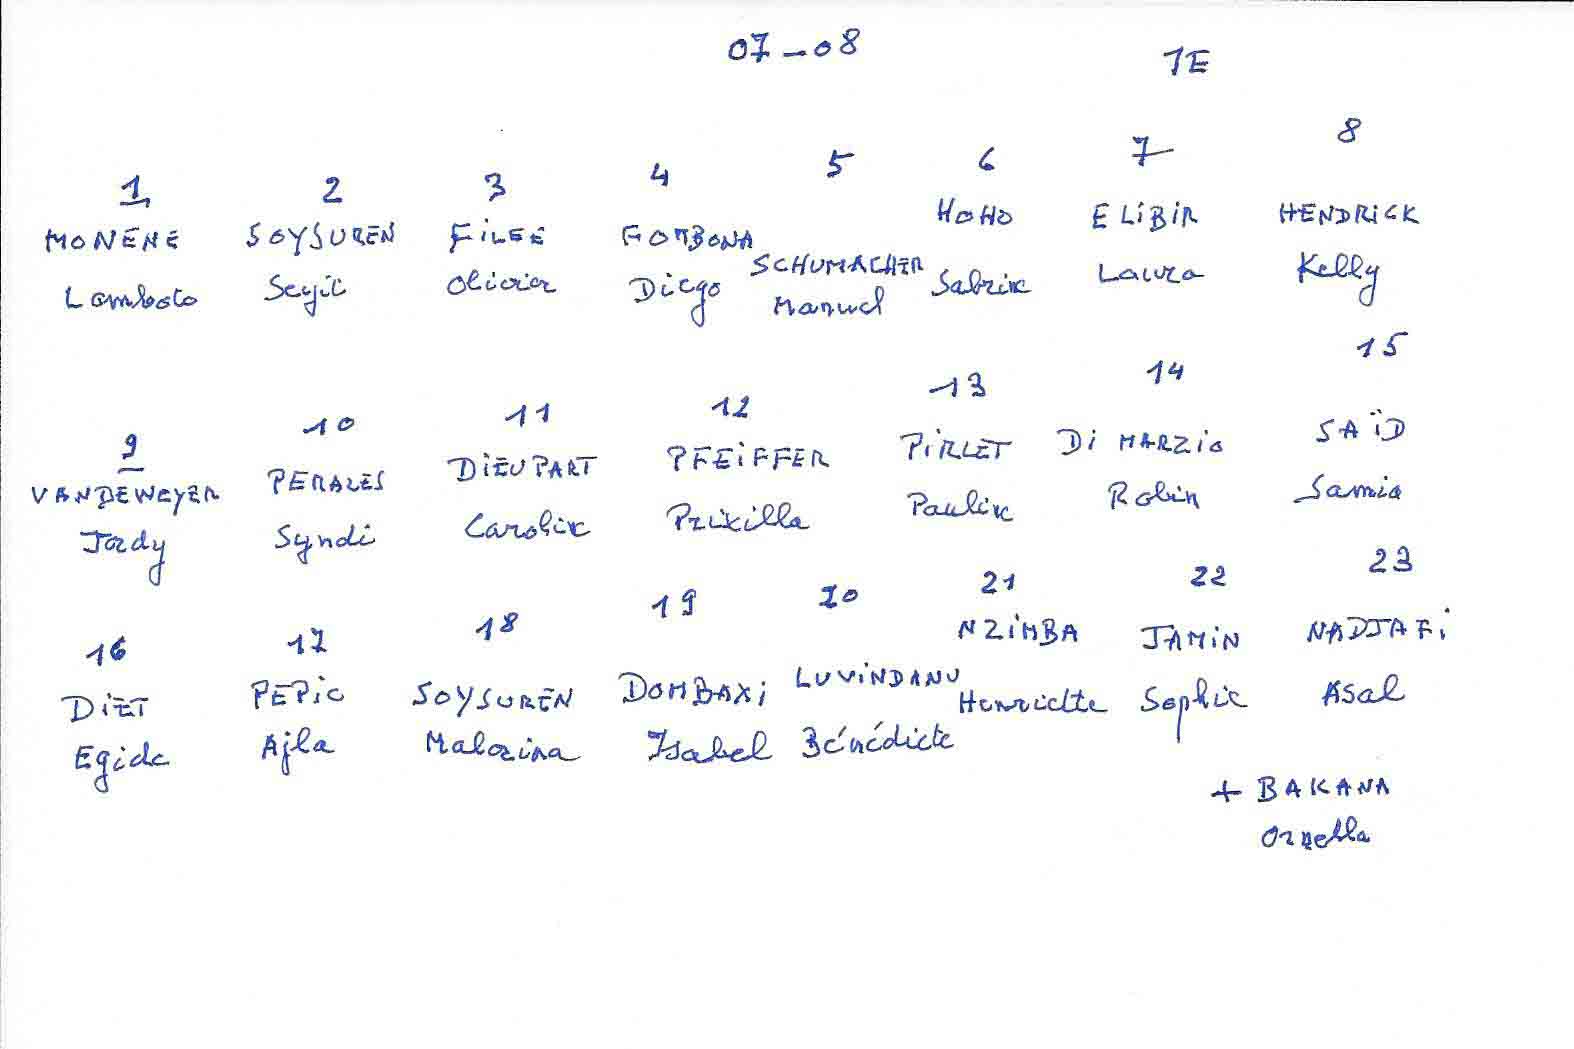 07-08 1E
1 2 3 4 5 6 7 8
MONENE SOYSUREN FILEE GOMBONA SCHUMACHER HOHO ELIBIR HENDRICK
Lomboto Seyit Olivier Diego Manuel Sabrine Laura Kelly
9 10 11 12 13 14 15
VANDEWEYER PERALES DIEUPART PFEIFFER PIRLET DI MARZIO SAÏD
Jordy Syndi Caroline Prixilla Pauline Robin Samia
16 17 18 19 20 21 22 23
DIET PEPIC SOYSUREN DOMBAXI LUVINDANU NZIMBA JAMIN NADJAFI
Egide Ajla Isabel Bénédicte Henriette Sophie Asal
+ BAKANA
Ornella